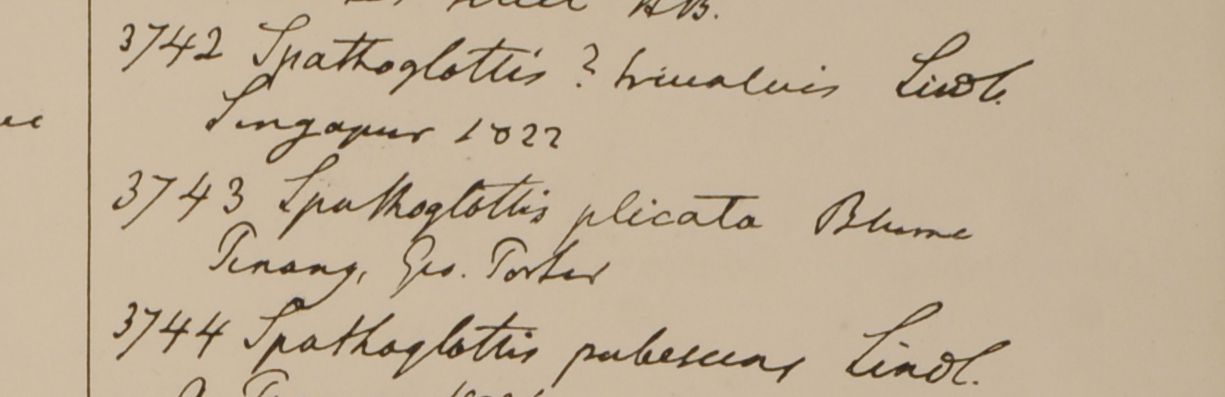 HB.
3742 Spathoglottis ? trivalvis Lindl.
Singapur 1822
3743 Spathoglottis plicata Blume
Pinang, Geo. Porter
3744 Spathoglottis pubescens Lindl.